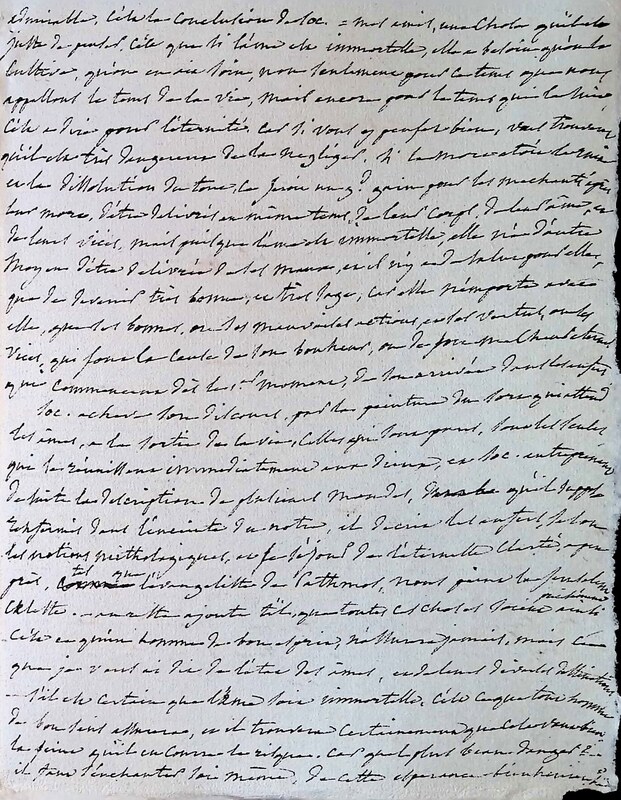 admirable, c'est la conclusion de soc. = mes amis, une chose qu'il est
juste de penser, c'est que si l'âme est immortelle, elle a besoin qu'on la
cultive, qu'on en ait soin, non seulement pour ce tems que nous
appellons le tems de la vie, mais encore pour le tems qui la suit
c'est a dire pour l'éternité. car si vous y pensez bien, vous trouverez
qu'il est très dangereux de la negliger. si la mort etoit la ruine
et la dissolution de tout, ce serou un gd. gain pour les mechants, après
leur mort, d'être delivrés en même tems, de leur corps, de leur âme, et
de leurs vices, mais puisque l'âme est immortelle, elle n'a d'autre
moyen d'être delivrée de ses maux, et il n'y a de salut pour elle,
que de devenir très bonne, et très sage, car elle n'emporte avec
elle, que ses bonnes, ou ses mauvaises actions, et ses vertus, ou ses
vices, qui sont la cause de son bonheur, ou de son malheur eternel
qui commencent dès le 1er moment, de son arrivée dans les enfers
soc. acheve son discours, par la peinture du sort qui attend
les âmes, a la sortie de la vie, celles qui sont pures, sont les seules
qui se réunissent immediatement aux dieux, et soc. entreprend
de suite la description de plusieurs mondes, qu'il suppose
renfermés dans l'enceinte du notre, il decrit les enfers, selon
les notions mithologiques, et le séjour de l'éternelle clarté a peu
près, tel que l'evangeliste de Pathmos, nous peint la Jerusalem
celeste. au reste ajoute t'il, que toutes ces choses soient précisement ainsi
c'est ce qu'un homme de bon esprit, n'assurera jamais, mais ce
que je vous ai dit de l'état des âmes, et de leurs diverses destinations
s'il est certain que l'âme soit immortelle, c'est ce que tout homme
de bon sens assurera, et il trouvera certainement que cela vaut bien
la peine qu'il en coure le risque. car quel plus beau danger ?
il faut s'enchanter soi même, de cette esperance bienheureuse